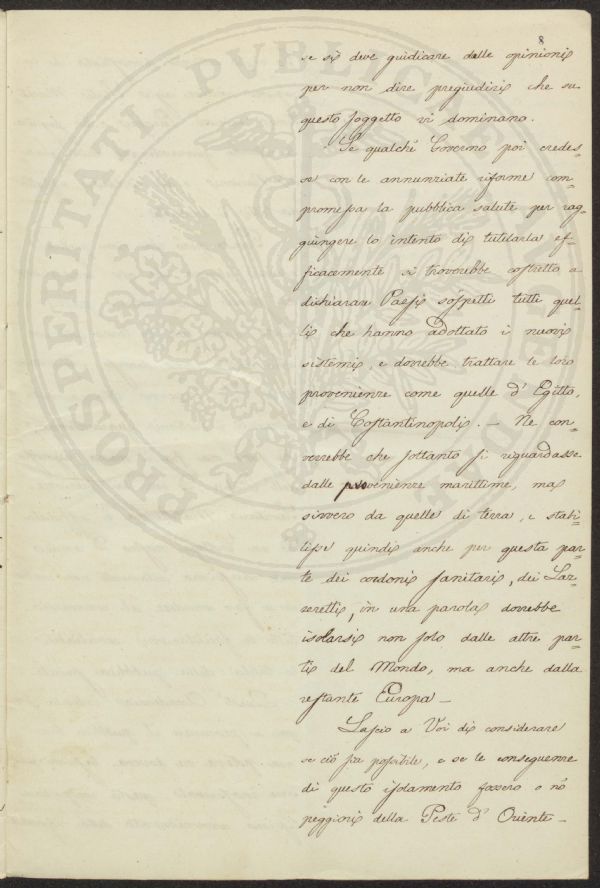 8
se si deve giudicare dalle opinioni
per non dire pregiudizi che su
questo soggetto vi dominano.
Se qualche Governo poi credes=
se con le annunziate riforme com=
promessa la pubblica salute per rag=
giungere lo intento di tutelarla ef=
ficacemente si troverebbe costretto a
dichiarare Paesi sospetti tutti quel=
li che hanno adottato i nuovi
sistemi, e dovrebbe trattare le loro
provenienze come quelle d'Egitto,
e di Costantinopoli. — Ne con=
verrebbe che soltanto si riguardasse
dalle provenienze marittime, ma
sivvero da quelle di terra, e stabi=
lisse quindi anche per questa par=
te dei cordoni sanitari, dei Laz=
zeretti, in una parola dovrebbe
isolarsi non solo dalle altre par=
ti del Mondo, ma anche dalla
restante Europa —
Lascio a Voi di considerare
se ciò sia possibile, e se le conseguenze
di questo isolamento fossero o nò
peggiori della Peste d'Oriente —
PROSPERITATI PVBLICAE